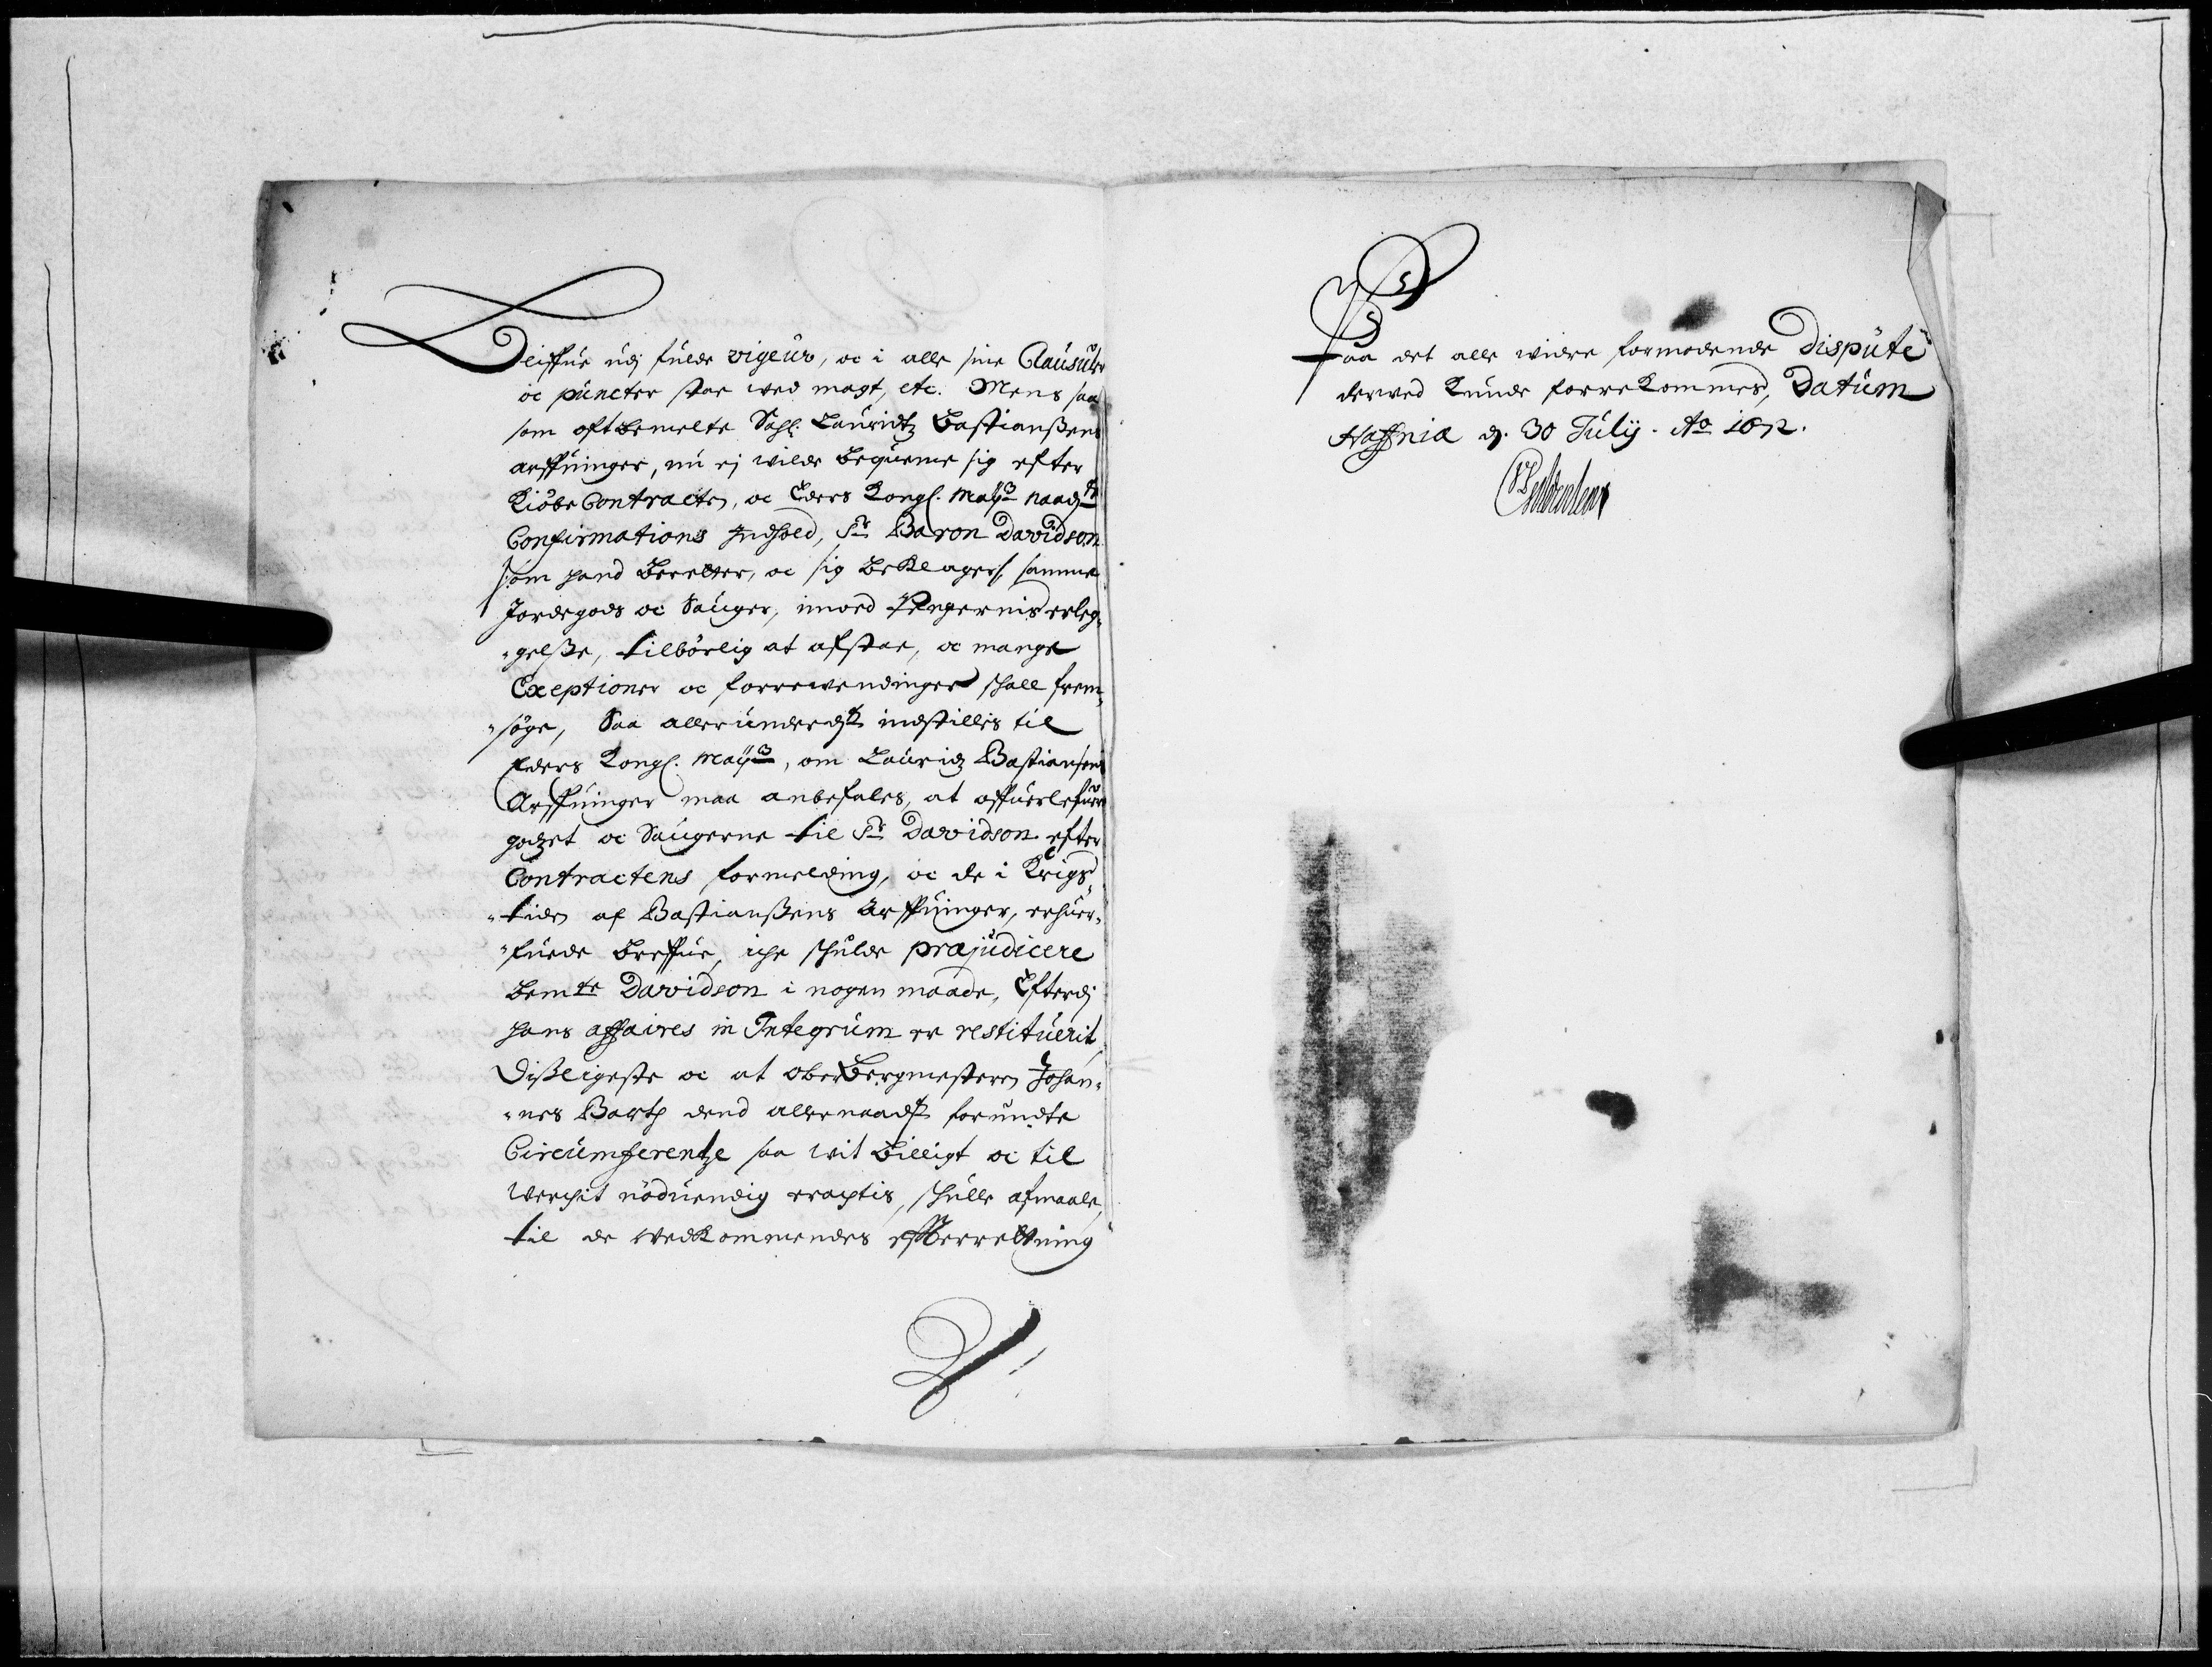 Bliffue udj fulde vigeur, oc i alle sine Clausuler
oc puncter stae wed magt, etc. Mens saa
som oftbemelte Sahl: Lauridtz Bastianßens
arffuinger, nu ej wilde beqveme sig efter
Kiöbe Contracten, oc Eders Kongl. May:ts naad:ste
Confirmations Indhold, Sr Baron Davidson
som hand beretter, oc sig beklager, samme
Jordegods oc Sauger, imod Pengernis erleg,,
,,gelße, tilbörlig at afstae, oc mange
Exeptioner oc forrewendinger schall frem,,
,,söge, Saa allerunderdst indstilles til
Eders Kongl. May:ts, om Lauridz Bastiansens
Arffuinger maa anbefales, at offuerlefuere
godzet oc Saugerne til Sr Davidson efter
Contractens formelding, oc de i Krigs,,
,,tiden af Bastianßens Arffuinger, erhuer,,
,,fuede breffue, iche schulde præjudicere
bemte Davidson i nogen maade, Efterdj
hans affaires in Integrum er restituerit
Dißligeste oc at oberBergmesteren Johan,,
,,nes Barth dend allernaadst forundte
Circumferentze saa wit billigt oc til
Werchit nöduendig eractis, schulle afmaale,
til de wedkommendes efterretning
Paa det alle widre formodende Dispute
derwed kunde forrekommes, Datum
Haffnia d. 30 Julij. Ao 1672.